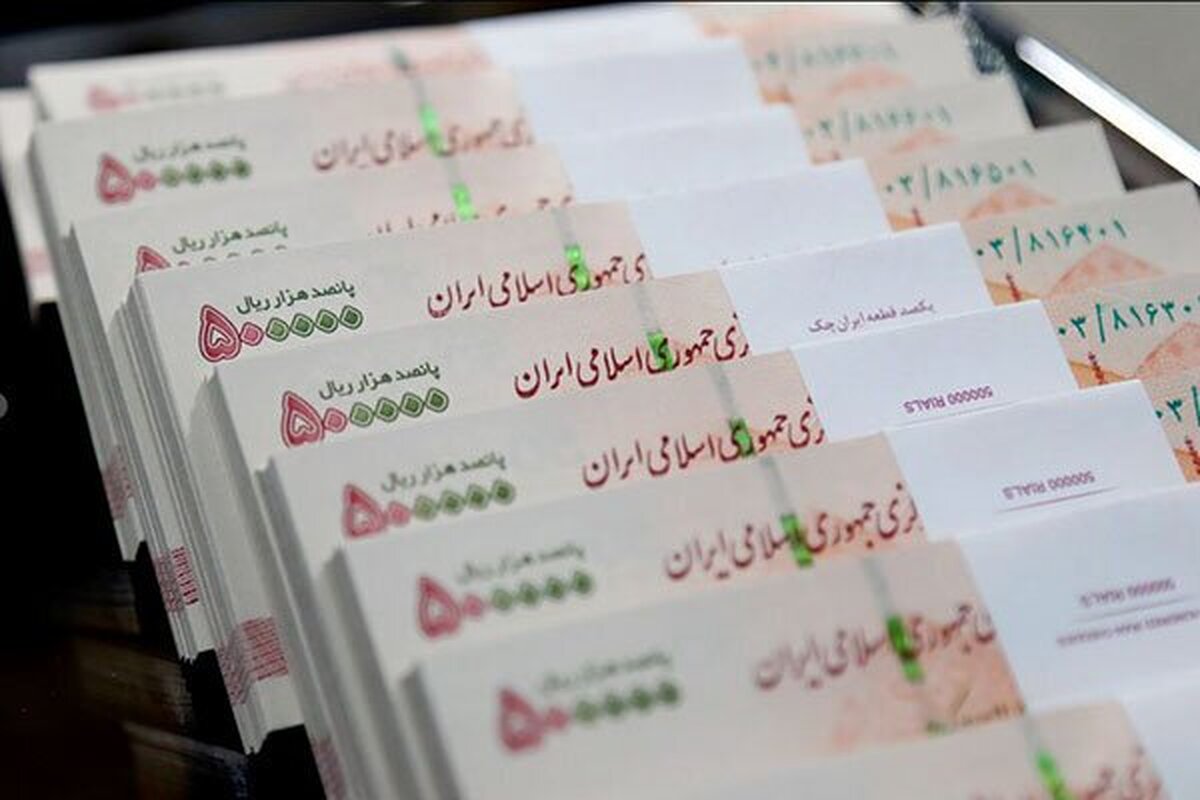 پانصد هزار ریال
۵۰۰۰۰۰
جمهوری اسلامی ایران
۰۳/۸۱۶۶۰۱
پانصد هزار ریال
جمهوری اسلامی ایران
۰۳/۸۱۶۵۰۱
پانصد هزار ریال
۵۰۰۰۰۰
جمهوری اسلامی ایران
۰۳/۸۱۶۴۰۱
یکصد قطعه ایران چک
پانصد هزار ریال
۵۰۰۰۰۰
جمهوری اسلامی ایران
۰۳/۸۱۶۳۰
500000 RIALS
پانصد هزار ریال
۵۰۰۰۰۰
جمهوری اسلامی ایران
۰۳/
500000 RIALS
پانصد هزار ریال
۵۰۰۰۰۰
جمهوری اسلامی ایران
500000 RIALS
پانصد هزار ریال
۵۰۰۰۰۰
جمهوری اسلامی ایران